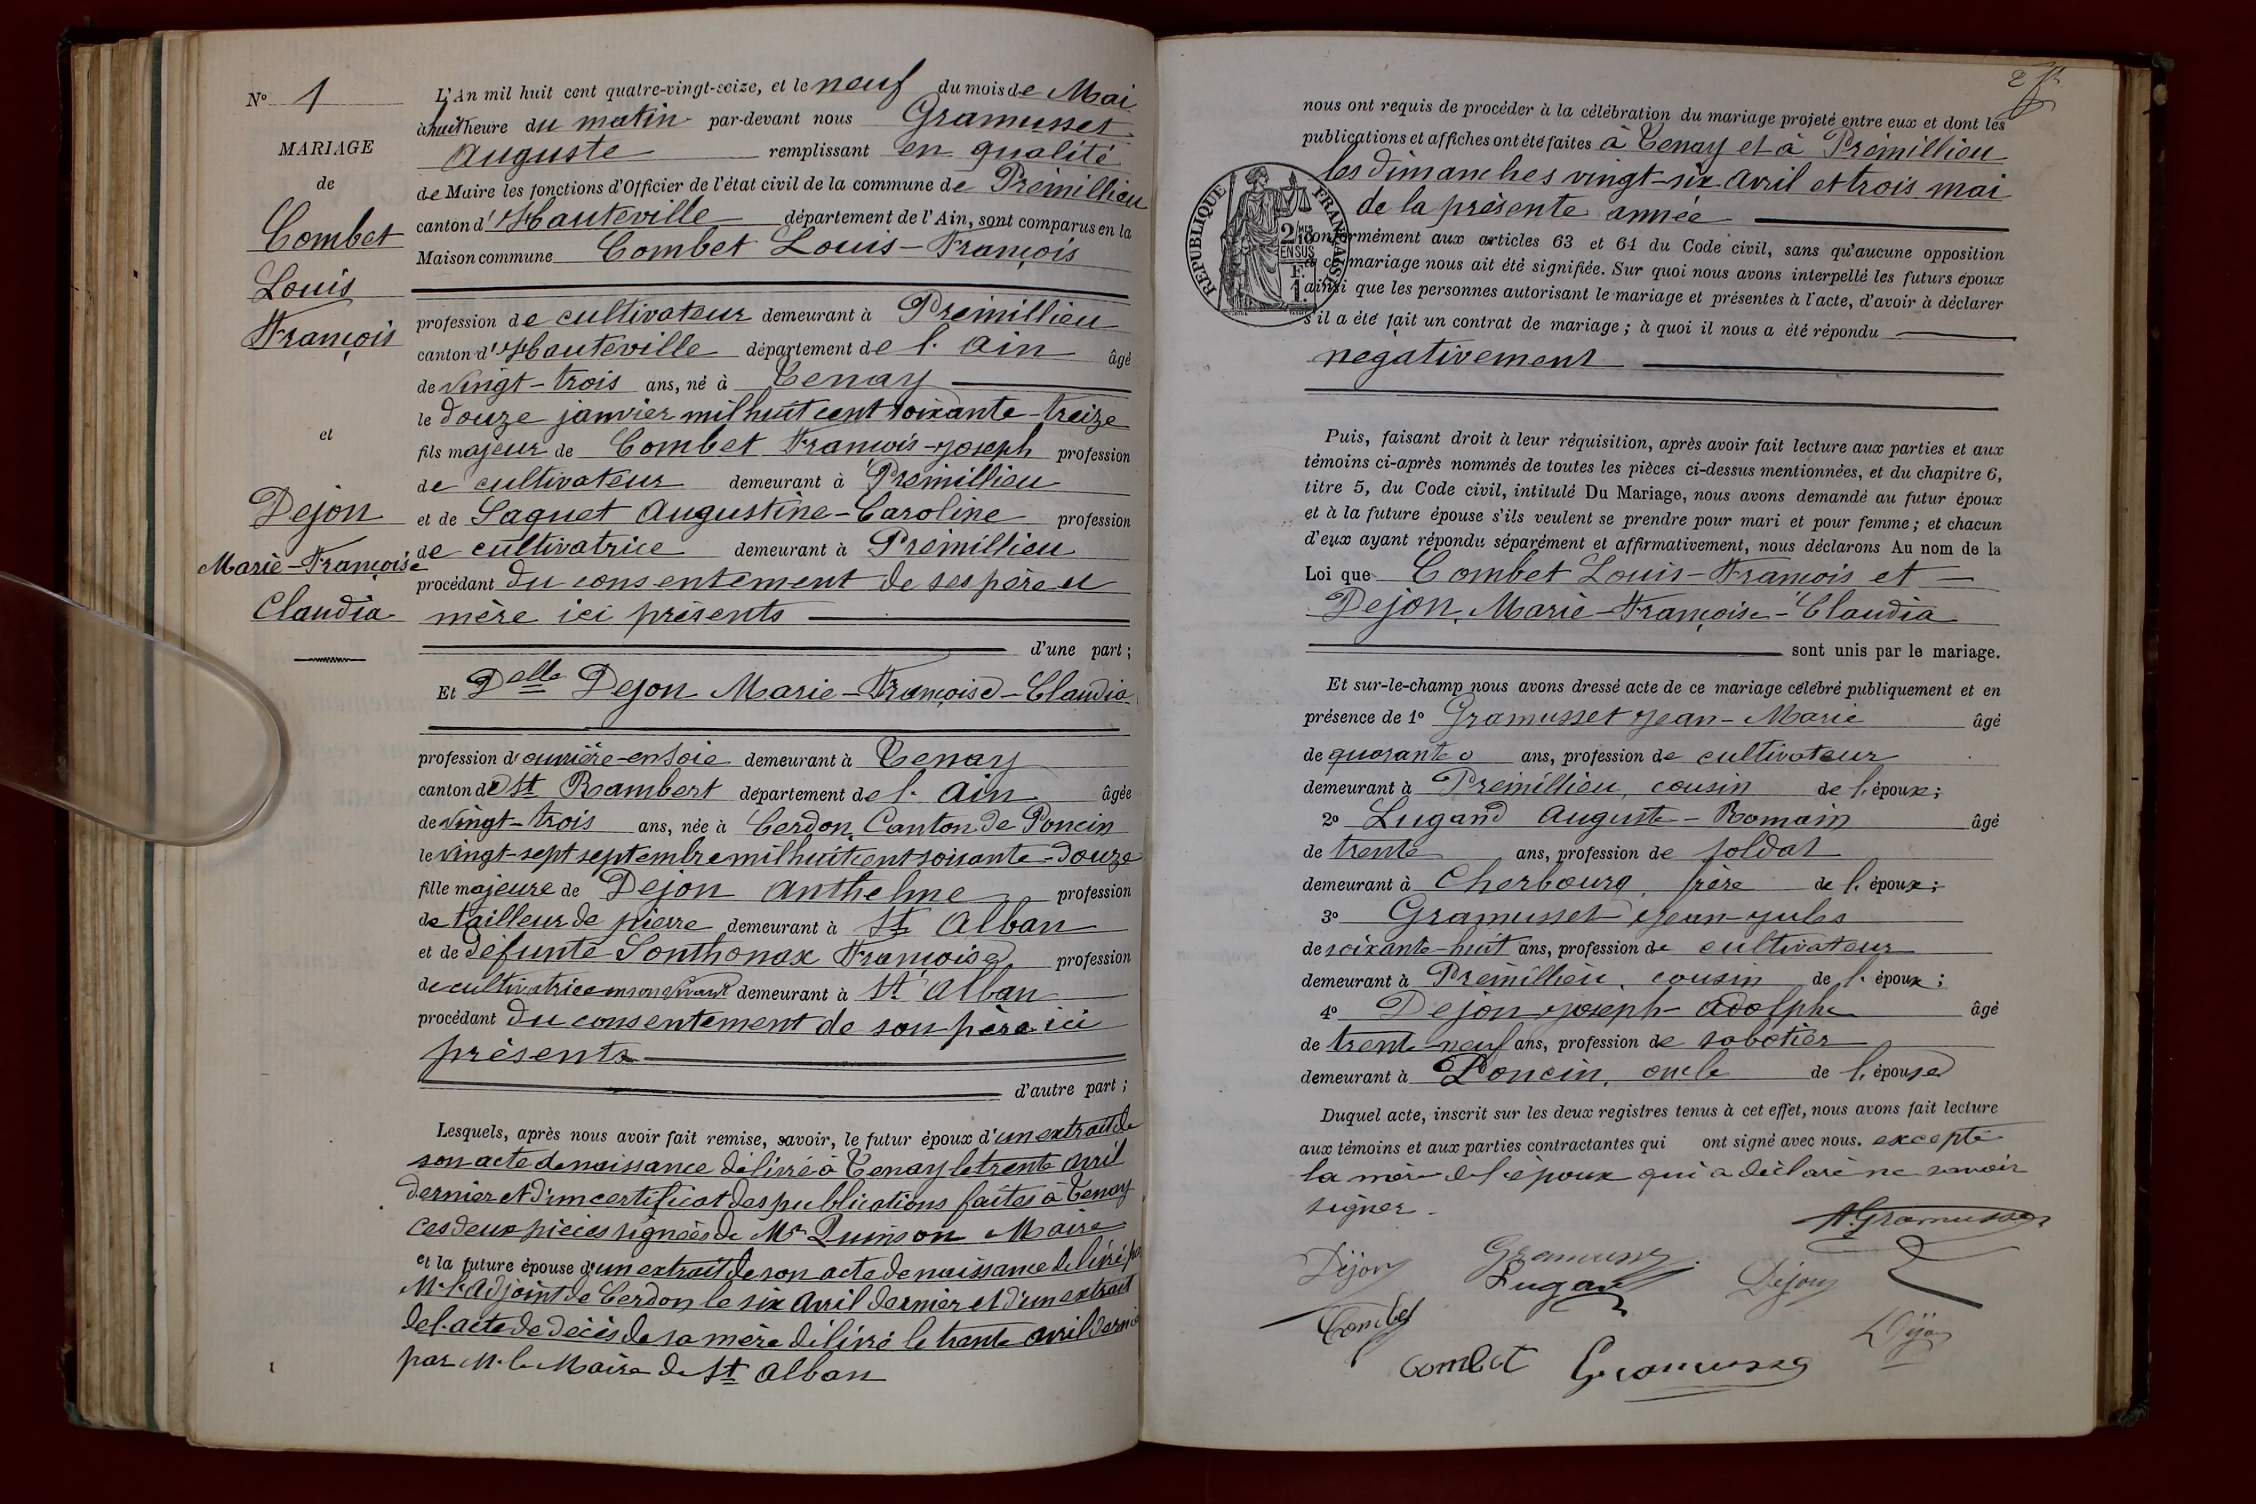 N° 1
MARIAGE
de
Combet
Louis
François
et
Dejon
Marie-Françoise
Claudia
L'An mil huit cent quatre-vingt-seize, et le neuf du mois de Mai
à huit heure du matin par-devant nous Gramusset
Auguste remplissant en qualité
de Maire les fonctions d'Officier de l'état civil de la commune de Prémillieu
canton d'Hauteville département de l'Ain, sont comparus en la
Maison commune Combet Louis-François
profession de cultivateur demeurant à Prémillieu
canton d'Hauteville département de l'Ain âgé
de vingt-trois ans, né à Tenay
le douze janvier mil huit cent soixante-treize
fils majeur de Combet François-Joseph profession
de cultivateur demeurant à Prémillieu
et de Saguet Augustine-Caroline profession
de cultivatrice demeurant à Prémillieu
procédant du consentement de ses père et
mère ici présents
d'une part;
Et Delle Dejon Marie-Françoise-Claudia
profession d'ouvrière en soie demeurant à Tenay
canton de St Rambert département de l'Ain âgée
de vingt-trois ans, née à Cerdon Canton de Poncin
le vingt-sept septembre mil huit cent soixante-douze
fille majeure de Dejon Anthelme profession
de tailleur de pierre demeurant à St Alban
et de défunte Sonthonax Françoise profession
de cultivatrice en son vivant demeurant à St Alban
procédant du consentement de son père ici
présents
d'autre part;
Lesquels, après nous avoir fait remise, savoir, le futur époux d'un extrait de
son acte de naissance délivré à Tenay le trente avril
dernier et d'un certificat des publications faites à Tenay
ces deux pièces signées de Mr Quinson Maire
et la future épouse d'un extrait de son acte de naissance délivré par
Mr l'Adjoint de Cerdon le six avril dernier et d'un extrait
de l'acte de décès de sa mère délivré le trente avril dernier
par Mr le Maire de St Alban
nous ont requis de procéder à la célébration du mariage projeté entre eux et dont les
publications et affiches ont été faites à Tenay et à Prémillieu
les dimanches vingt-six avril et trois mai
de la présente année
REPUBLIQUE FRANÇAISE
2/10 MES EN SUS
F. 1.
conformément aux articles 63 et 64 du Code civil, sans qu'aucune opposition
à ce mariage nous ait été signifiée. Sur quoi nous avons interpellé les futurs époux
ainsi que les personnes autorisant le mariage et présentes à l'acte, d'avoir à déclarer
s'il a été fait un contrat de mariage; à quoi il nous a été répondu
negativement
Puis, faisant droit à leur réquisition, après avoir fait lecture aux parties et aux
témoins ci-après nommés de toutes les pièces ci-dessus mentionnées, et du chapitre 6,
titre 5, du Code civil, intitulé Du Mariage, nous avons demandé au futur époux
et à la future épouse s'ils veulent se prendre pour mari et pour femme; et chacun
d'eux ayant répondu séparément et affirmativement, nous déclarons Au nom de la
Loi que Combet Louis-François et
Dejon, Marie-Françoise-Claudia
sont unis par le mariage.
Et sur-le-champ nous avons dressé acte de ce mariage célébré publiquement et en
présence de 1° Gramusset Jean-Marie âgé
de quarante ans, profession de cultivateur
demeurant à Prémillieu, cousin de l'époux;
2° Lugand Auguste-Romain âgé
de trente ans, profession de soldat
demeurant à Cherbourg, frère de l'époux;
3° Gramusset Jean-Jules
de soixante-huit ans, profession de cultivateur
demeurant à Prémillieu, cousin de l'époux;
4° Dejon Joseph-Adolphe âgé
de trente-neuf ans, profession de sabotier
demeurant à Poncin, oncle de l'épouse
Duquel acte, inscrit sur les deux registres tenus à cet effet, nous avons fait lecture
aux témoins et aux parties contractantes qui ont signé avec nous. excepté
la mère de l'époux qui a déclaré ne savoir
signer.
A. Gramusset
Dejon Gramusset Dejon
Lugand
Combet Dejon
Combet Gramusset